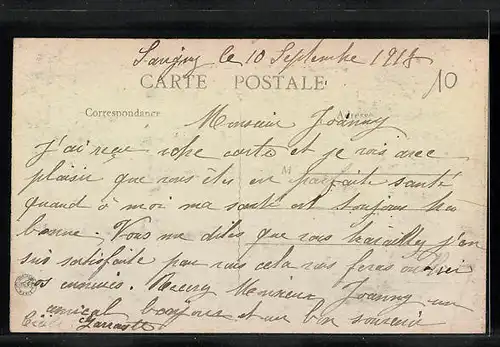 Savigny le 10 Septembre 1918
CARTE POSTALE
10
Correspondance
Adresse
Monsieur Joanny
J'ai reçu votre carte et je vois avec
plaisir que vous êtes en parfaite santé
M
quand à moi ma santé est toujours très
bonne. Vous me dites que vous travaillez j'en
suis satisfaite pour vous cela vous feras oublier
vos ennuies. Recevez Monsieur Joanny un
amical bonjour et un bon souvenir